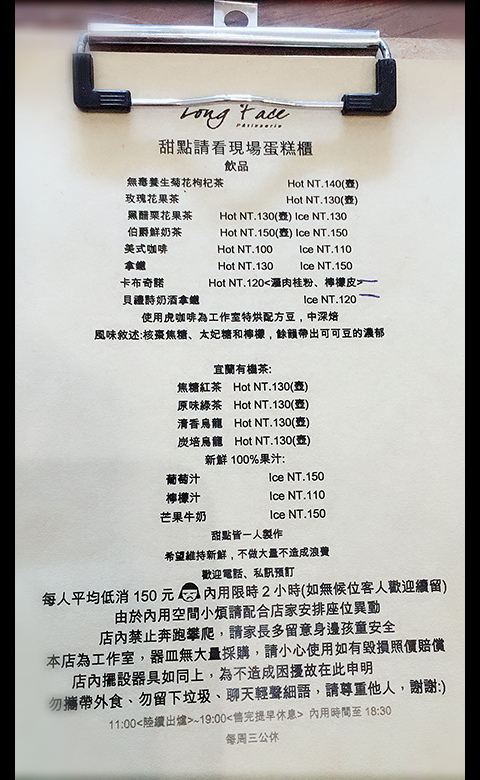 Long Face
Pâtisserie
甜點請看現場蛋糕櫃
飲品
無毒養生菊花枸杞茶 Hot NT.140(壺)
玫瑰花果茶 Hot NT.130(壺)
黑醋栗花果茶 Hot NT.130(壺) Ice NT.130
伯爵鮮奶茶 Hot NT.150(壺) Ice NT.150
美式咖啡 Hot NT.100 Ice NT.110
拿鐵 Hot NT.130 Ice NT.150
卡布奇諾 Hot NT.120<灑肉桂粉、檸檬皮>
貝禮詩奶酒拿鐵 Ice NT.120
使用虎咖啡為工作室特烘配方豆，中深焙
風味敘述:核棗焦糖、太妃糖和檸檬，餘韻帶出可可豆的濃郁
宜蘭有機茶:
焦糖紅茶 Hot NT.130(壺)
原味綠茶 Hot NT.130(壺)
清香烏龍 Hot NT.130(壺)
炭培烏龍 Hot NT.130(壺)
新鮮 100%果汁:
葡萄汁 Ice NT.150
檸檬汁 Ice NT.110
芒果牛奶 Ice NT.150
甜點皆一人製作
希望維持新鮮，不做大量不造成浪費
歡迎電話、私訊預訂
每人平均低消 150 元 內用限時 2 小時(如無候位客人歡迎續留)
由於內用空間小煩請配合店家安排座位異動
店內禁止奔跑攀爬，請家長多留意身邊孩童安全
本店為工作室，器皿無大量採購，請小心使用如有毀損照價賠償
店內擺設器具如同上，為不造成困擾故在此申明
勿攜帶外食、勿留下垃圾、聊天輕聲細語，請尊重他人，謝謝:)
11:00<陸續出爐>~19:00<售完提早休息> 內用時間至 18:30
每周三公休